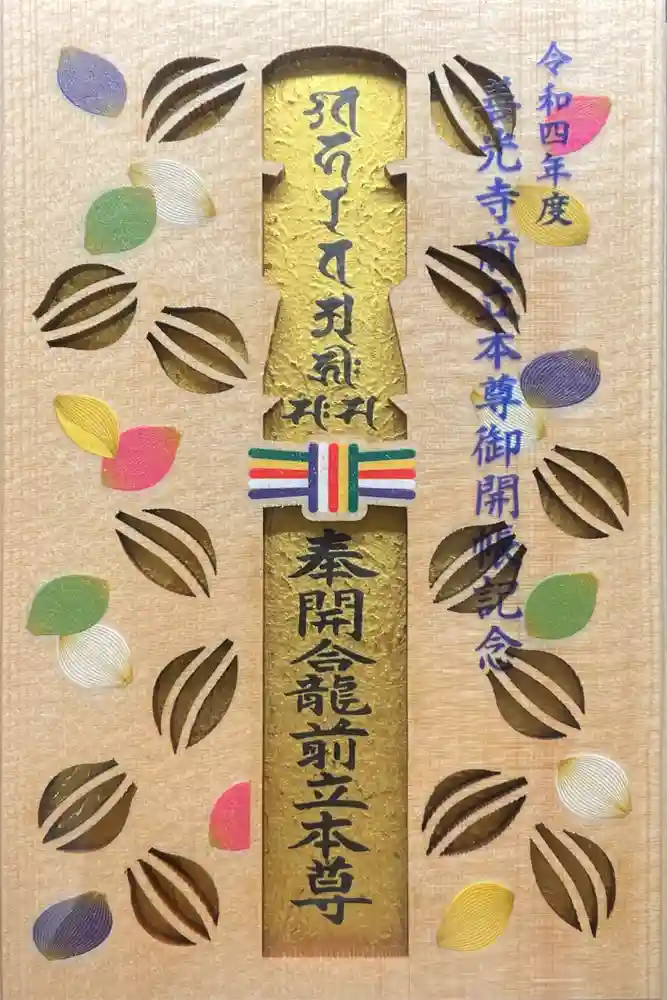 令和四年度
善光寺前立本尊御開帳記念
奉開龕前立本尊